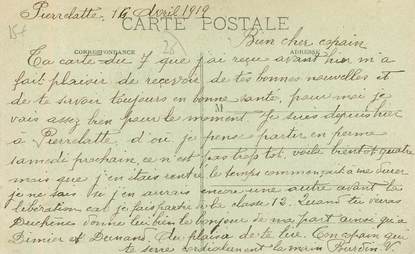 Pierrelatte, 16 Avril 1919
CARTE POSTALE
CORRESPONDANCE
ADRESSE
Bien cher copain
Ta carte du 7 que j'ai reçue avant hier m'a
fait plaisir de recevoir de tes bonnes nouvelles et
de te savoir toujours en bonne santé, pour moi je
vais assez bien pour le moment. Je suis depuis hier
à Pierrelatte, d'où je pense partir en perme
samedi prochain, ce n'est pas trop tot, voila bientot quatre
mois que j'en étais rentré, le temps commençait a me durer
je ne sais si j'en aurais encore une autre avant la
libération car je fais partie de la classe 12. Quand tu verras
Duchêne donne lui bien le bonjour de ma part ainsi qu'a
et Durand. Au plaisir de te lire. Ton copain qui
te serre cordialement la main Burdin V.